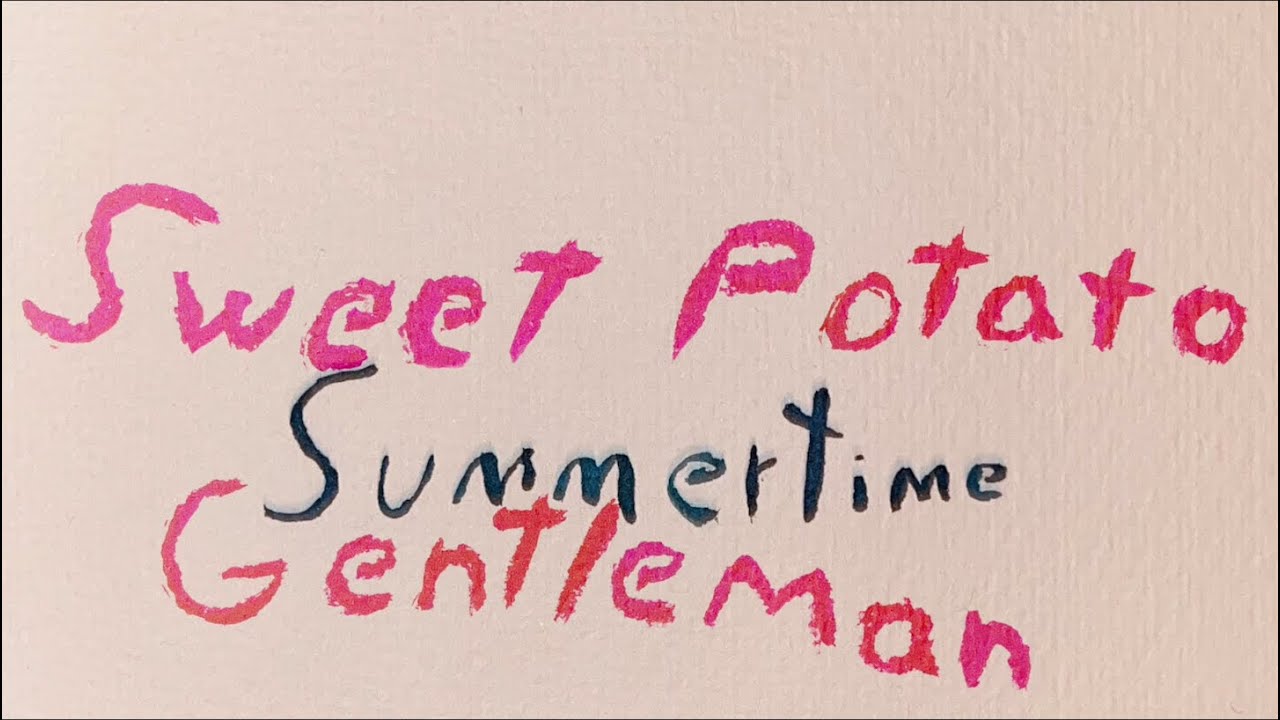 Sweet Potato
Summertime
Gentleman